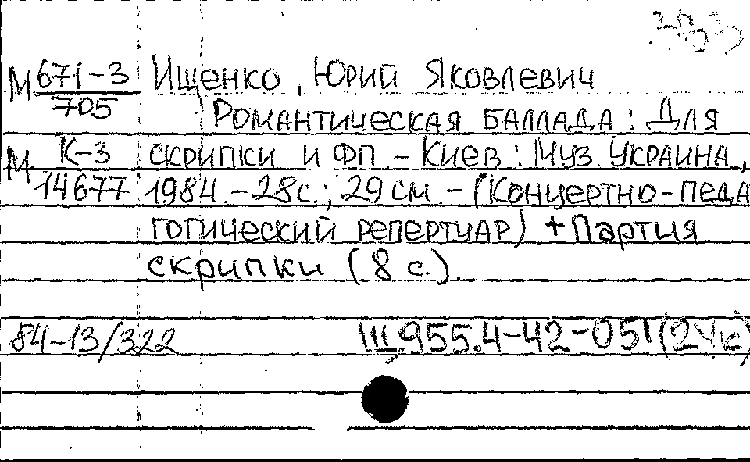 М 671-3/705 Ищенко, Юрий Яковлевич
Романтическая баллада: Для
М К-3/14677 скрипки и фп - Киев: Муз. Украина,
1984. - 28 с.; 29 см - (Концертно-педа
гогический репертуар) + Партия
скрипки (8 с.).
84-13/322 Щ955.4-42-051(2Ук)